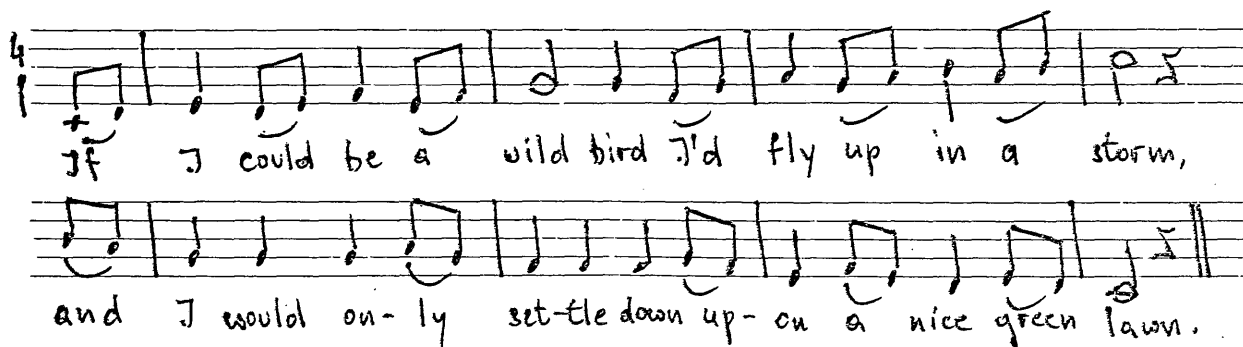 4
If I could be a wild bird I'd fly up in a storm,
and I would on-ly set-tle down up-on a nice green lawn.